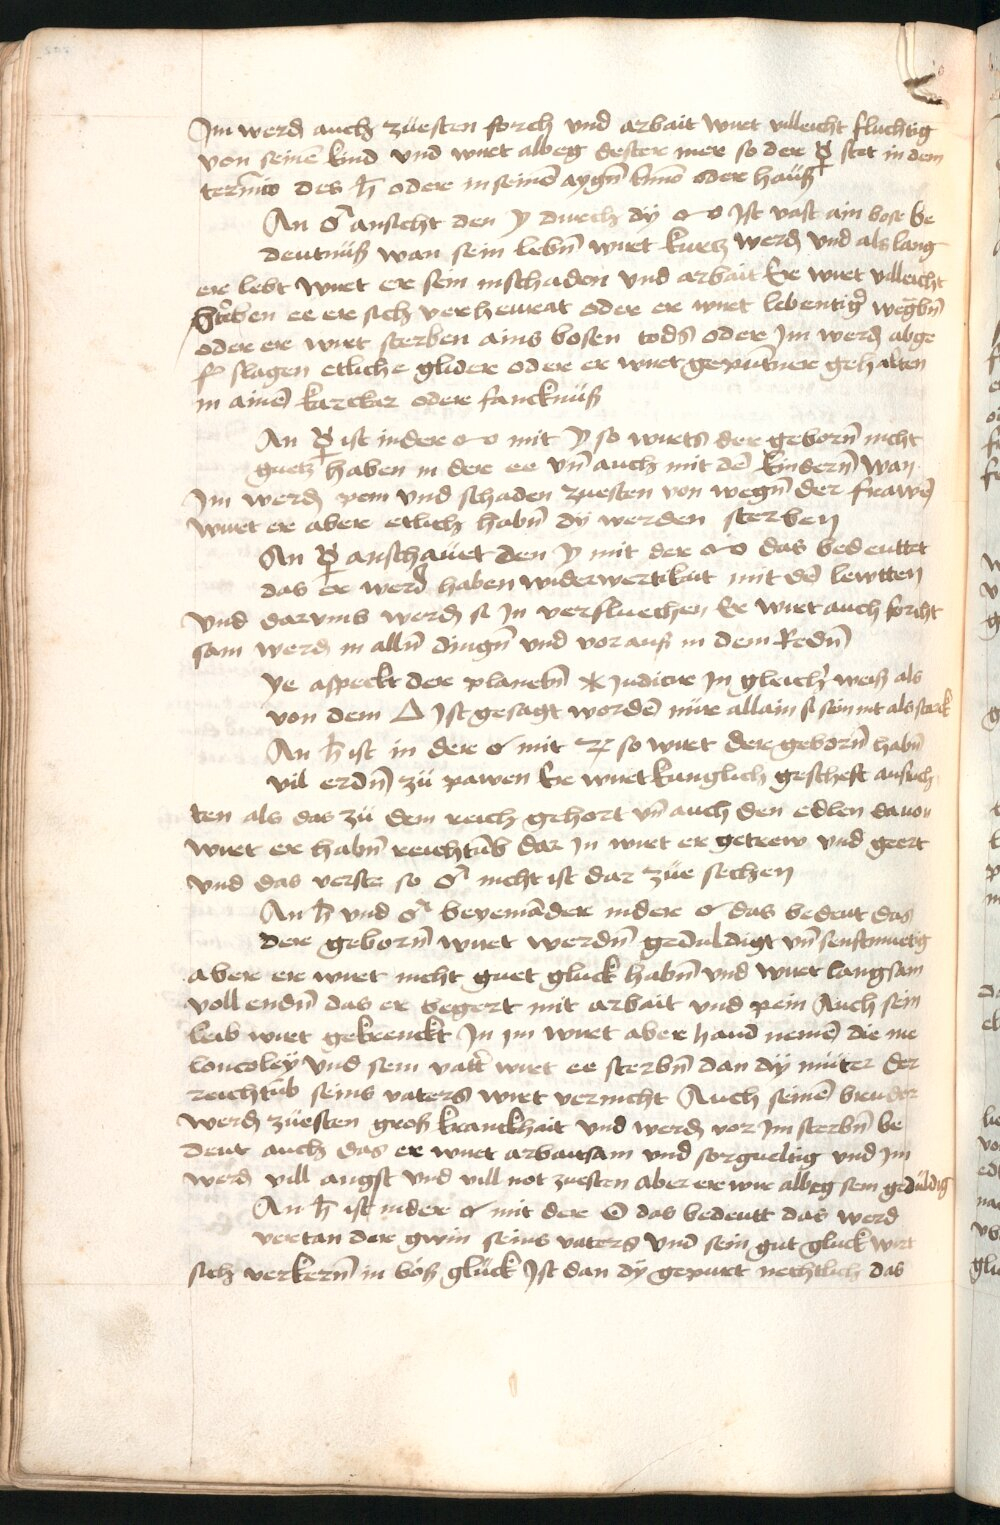 Im werdn auch zuesten forch vnd arbait wirt villeicht fluchtig
von seinē kind vnd wirt albeg dester mer so der ☿ stet in dem
termīo des ♄ oder in seinē aygn̄ oder hauß
An ♂ ansicht den ☽ durch dÿ ☍ Ist vast ain bose be
deutnuß wan sein lebn̄ wirt kurtz werdn vnd als lang
er lebt wirt er sein in schaden vnd arbait Er wirt villeicht
sterben ee er sich verheurat oder er wirt lebentiger
oder er wirt sterben ains bosen tods oder Im werdn abge
slagen etliche glider oder er wirt gepuntner gehalten
in ainē karcker oder fancknuß
An ☿ ist in der ☍ mit ☽ so wirts der geborn̄ nicht
guetz haben in der ee vn̄ auch mit dē kindern̄ wan
Im werdn pein vnd schaden zuesten von wegn̄ der frawē
wirt er aber etlich habn̄ dÿ werden sterben
An ☿ anschauet den ☽ mit der ☍ das bedeuttet
das er werd haben widerwertikait mit dē lewtten
vnd darvmb werdn si In verfluechen Er wirt auch forcht
sam werdn in alln̄ dingn̄ vnd vorauß in dem Redn̄
Ye aspeckt der planetn̄ ⚹ Iudicir In gleicher weiß als
von dem △ Ist gesagt wordē nur allain si sein nit als starck
An ♄ ist in der ☌ mit ♃ so wirt der geborn̄ habn̄
vil erdn̄ zu pawen Er wirt kunglich gescheft
ten als das zu dem reich gehort vn̄ auch den edlen dauon
wirt er habn̄ reichtūb dar In wirt er getrew vnd geert
vnd das verste so ♂ nicht ist dar zue sechen
An ♄ vnd ♂ beyenāder in der ☌ das bedeut das
der geborn̄ wirt werdn̄ geduldigt vn̄ senftmuetig
aber er wirt nicht guet gluck habn̄ vnd wirt langsam
vollendn̄ das er begert mit arbait vnd pein Auch sein
leib wirt gekrenckt In im wirt aber hand nemē die me
loncoleÿ vnd sein vatter wirt ee sterbn̄ dan dÿ muter der
reichtūb seins vaters wirt vernicht Auch seinē bruder
werdn zuesten groß kranckhait vnd werdn vor Im sterbn̄ be
deut auch das er wirt arbaitsam vnd sorgueltig vnd im
werdn vill angst vnd vill not zuesten aber er wir albeg sein geduldig
An ♄ ist in der ☌ mit der ☉ das bedeutt das werd
vertan der gwin seins vaters vnd sein gut gluck wirt
sich verkern̄ in böß glück Ist dan dÿ gepurt nechtlich das